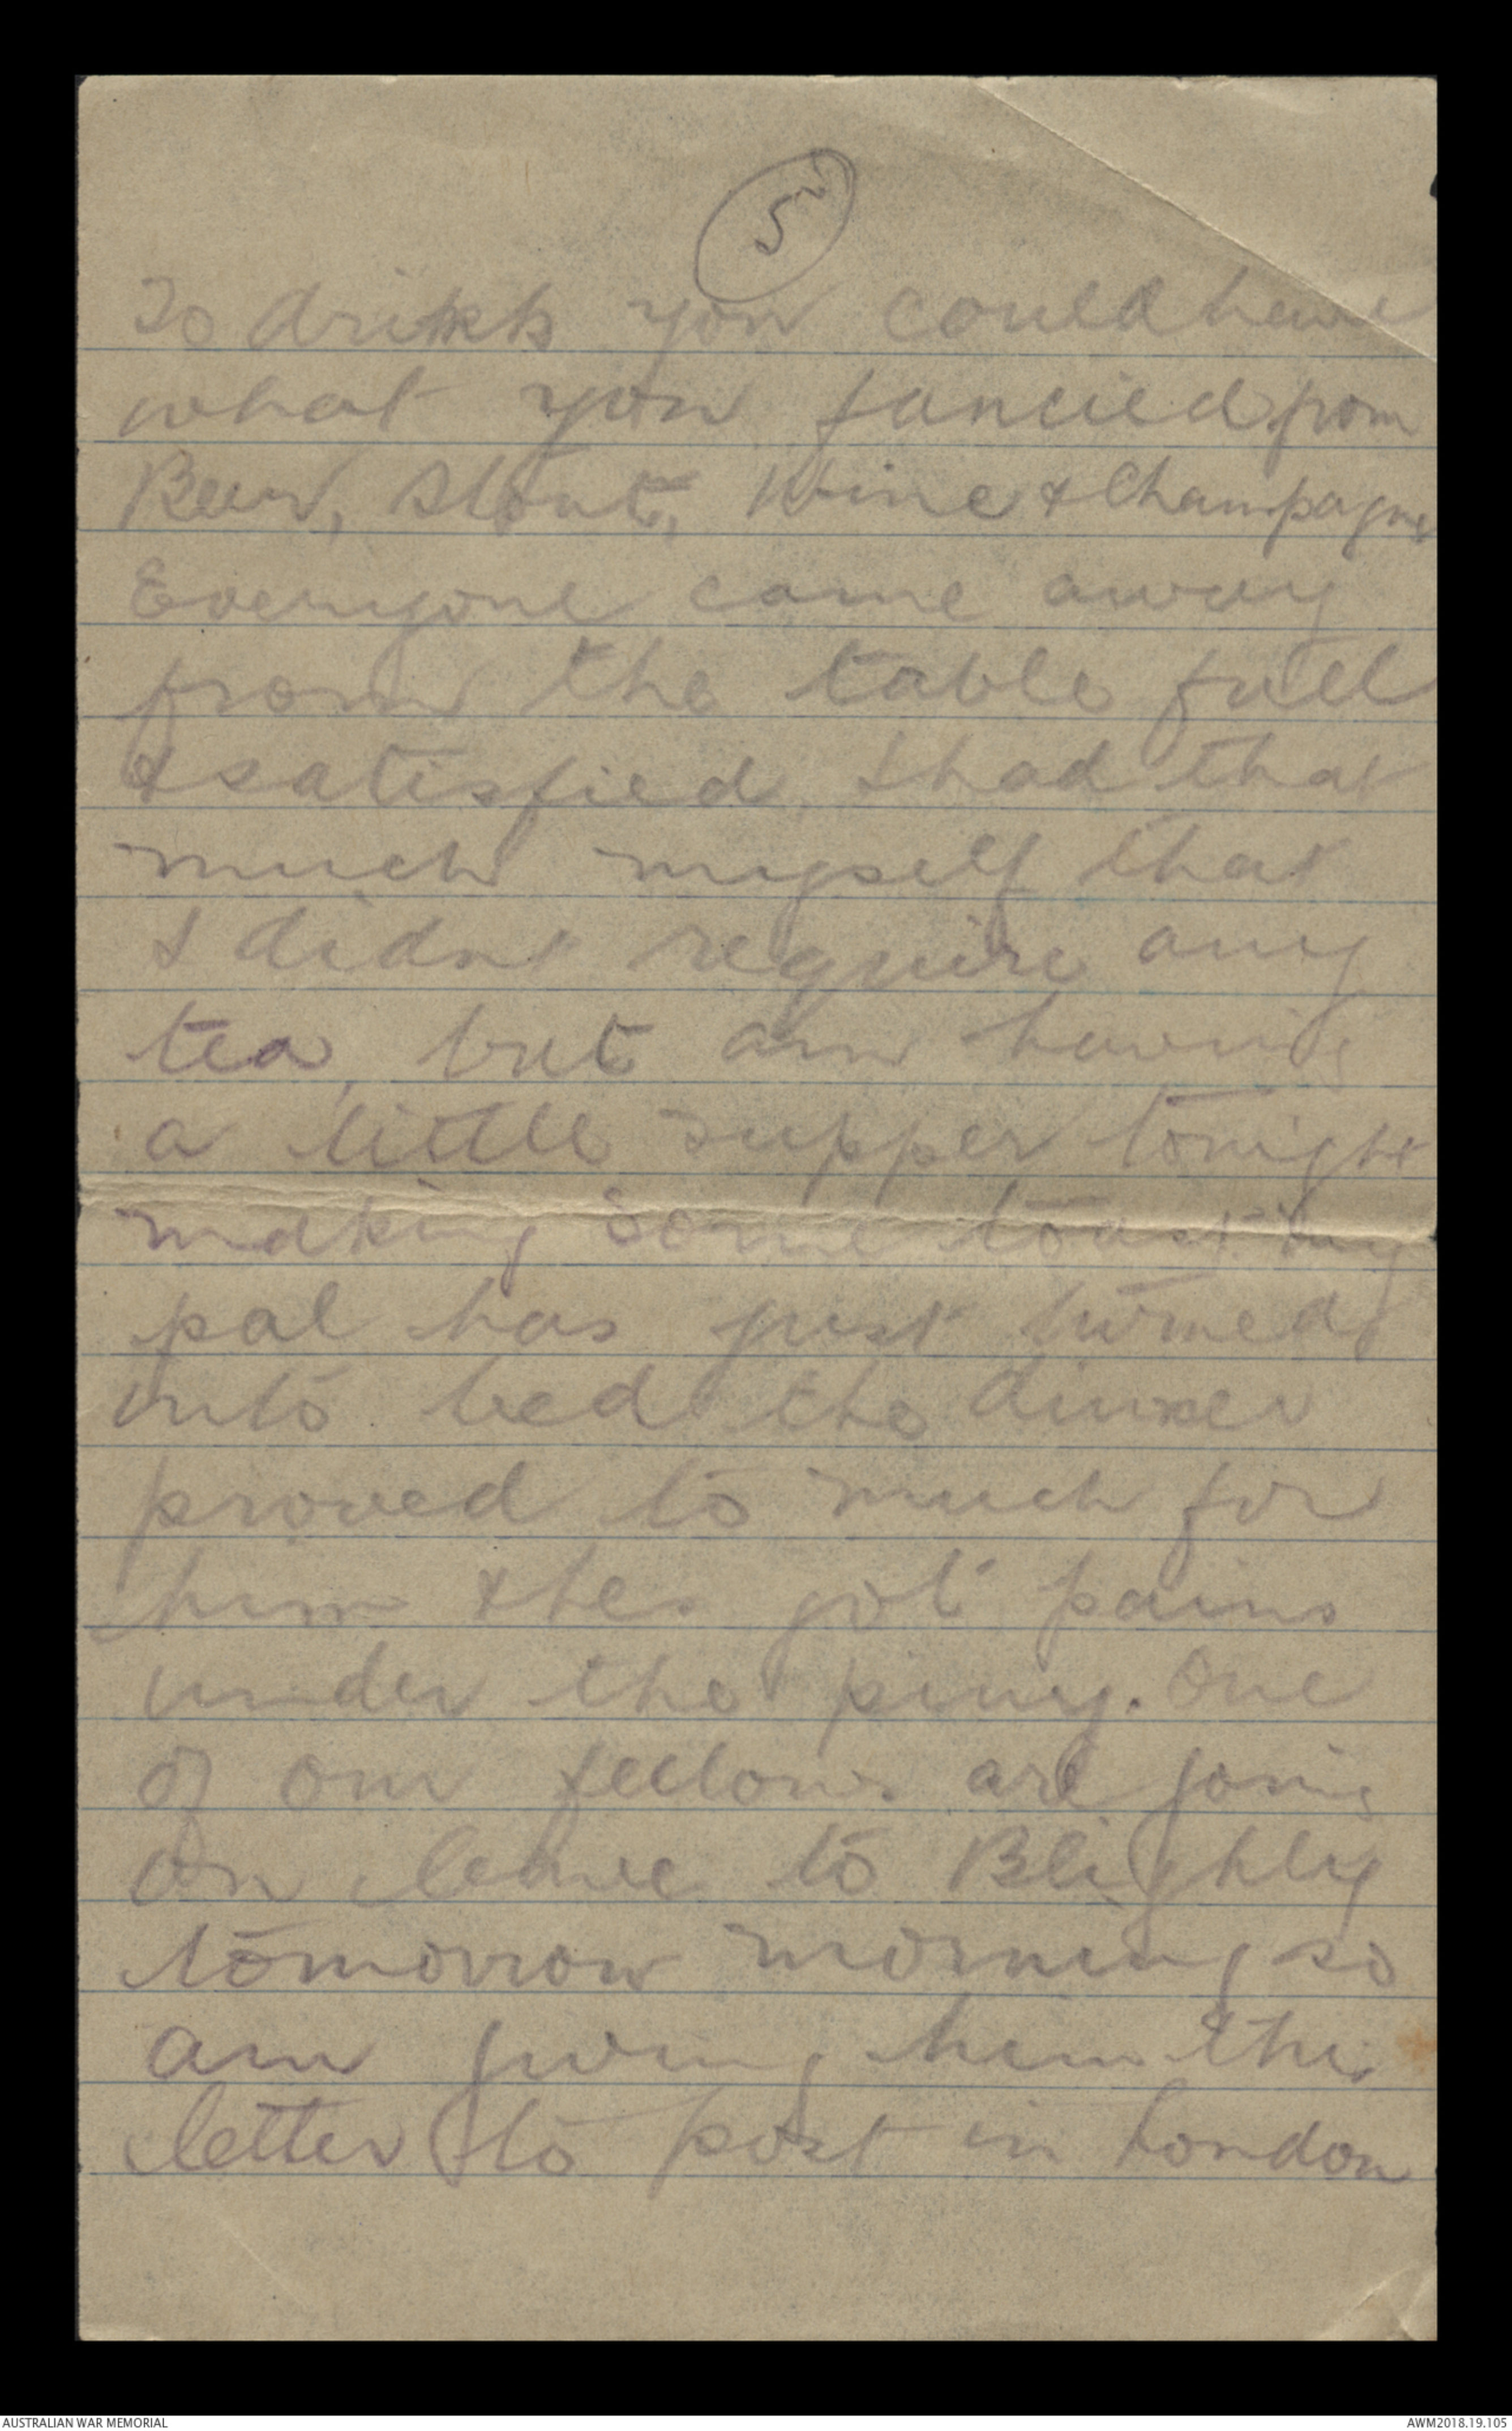 5
To drink you could have
what you fancied from
Beer, Stout, Wine & Champagne
Everyone came away
from the table full
& satisfied. I had that
much myself that
I didnt require any
tea, but am having
a little supper tonight
making some toast. My
pal has just turned
into bed the dinner
proved to much for
him & hes got pains
under the piny. One
of our fellows are going
on leave to Blighty
tomorrow morning so
am giving him this
letter to post in London
AUSTRALIAN WAR MEMORIAL
AWM2018.19.105